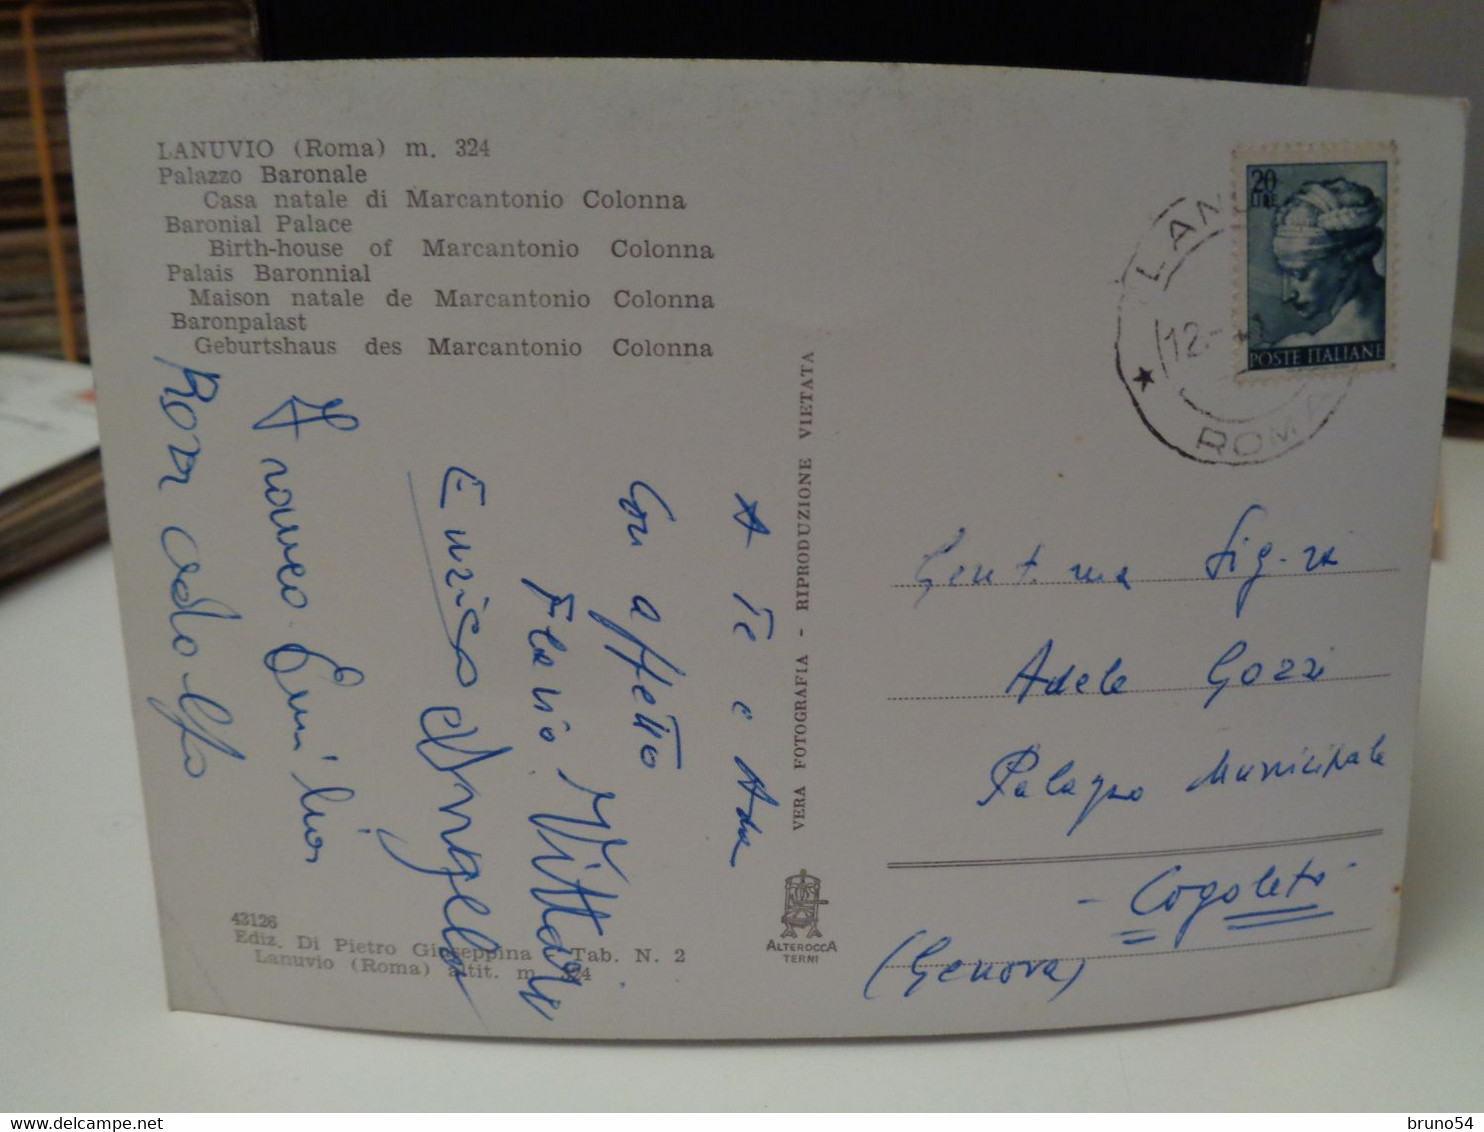 LANUVIO (Roma) m. 324
Palazzo Baronale
Casa natale di Marcantonio Colonna
Baronial Palace
Birth-house of Marcantonio Colonna
Palais Baronnial
Maison natale de Marcantonio Colonna
Baronpalast
Geburtshaus des Marcantonio Colonna
A Te e Ada
Con affetto
Flavio Vittorio
Enrico Angela
Emilio
Rosa adolfo
43126
Ediz. Di Pietro Giuseppina - Tab. N. 2
Lanuvio (Roma) altit. m. 324
VERA FOTOGRAFIA - RIPRODUZIONE VIETATA
ALTEROCCA
TERNI
20
LIRE
POSTE ITALIANE
LANU
12.-
ROMA
Gent.ma Sig.ra
Adele Gozzi
Palazzo Municipale
- Cogoleto -
(Genova)
bruno54